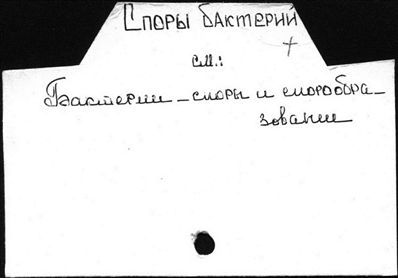 Споры бактерий
см.:
Бактерии - споры и спорообра-
зование